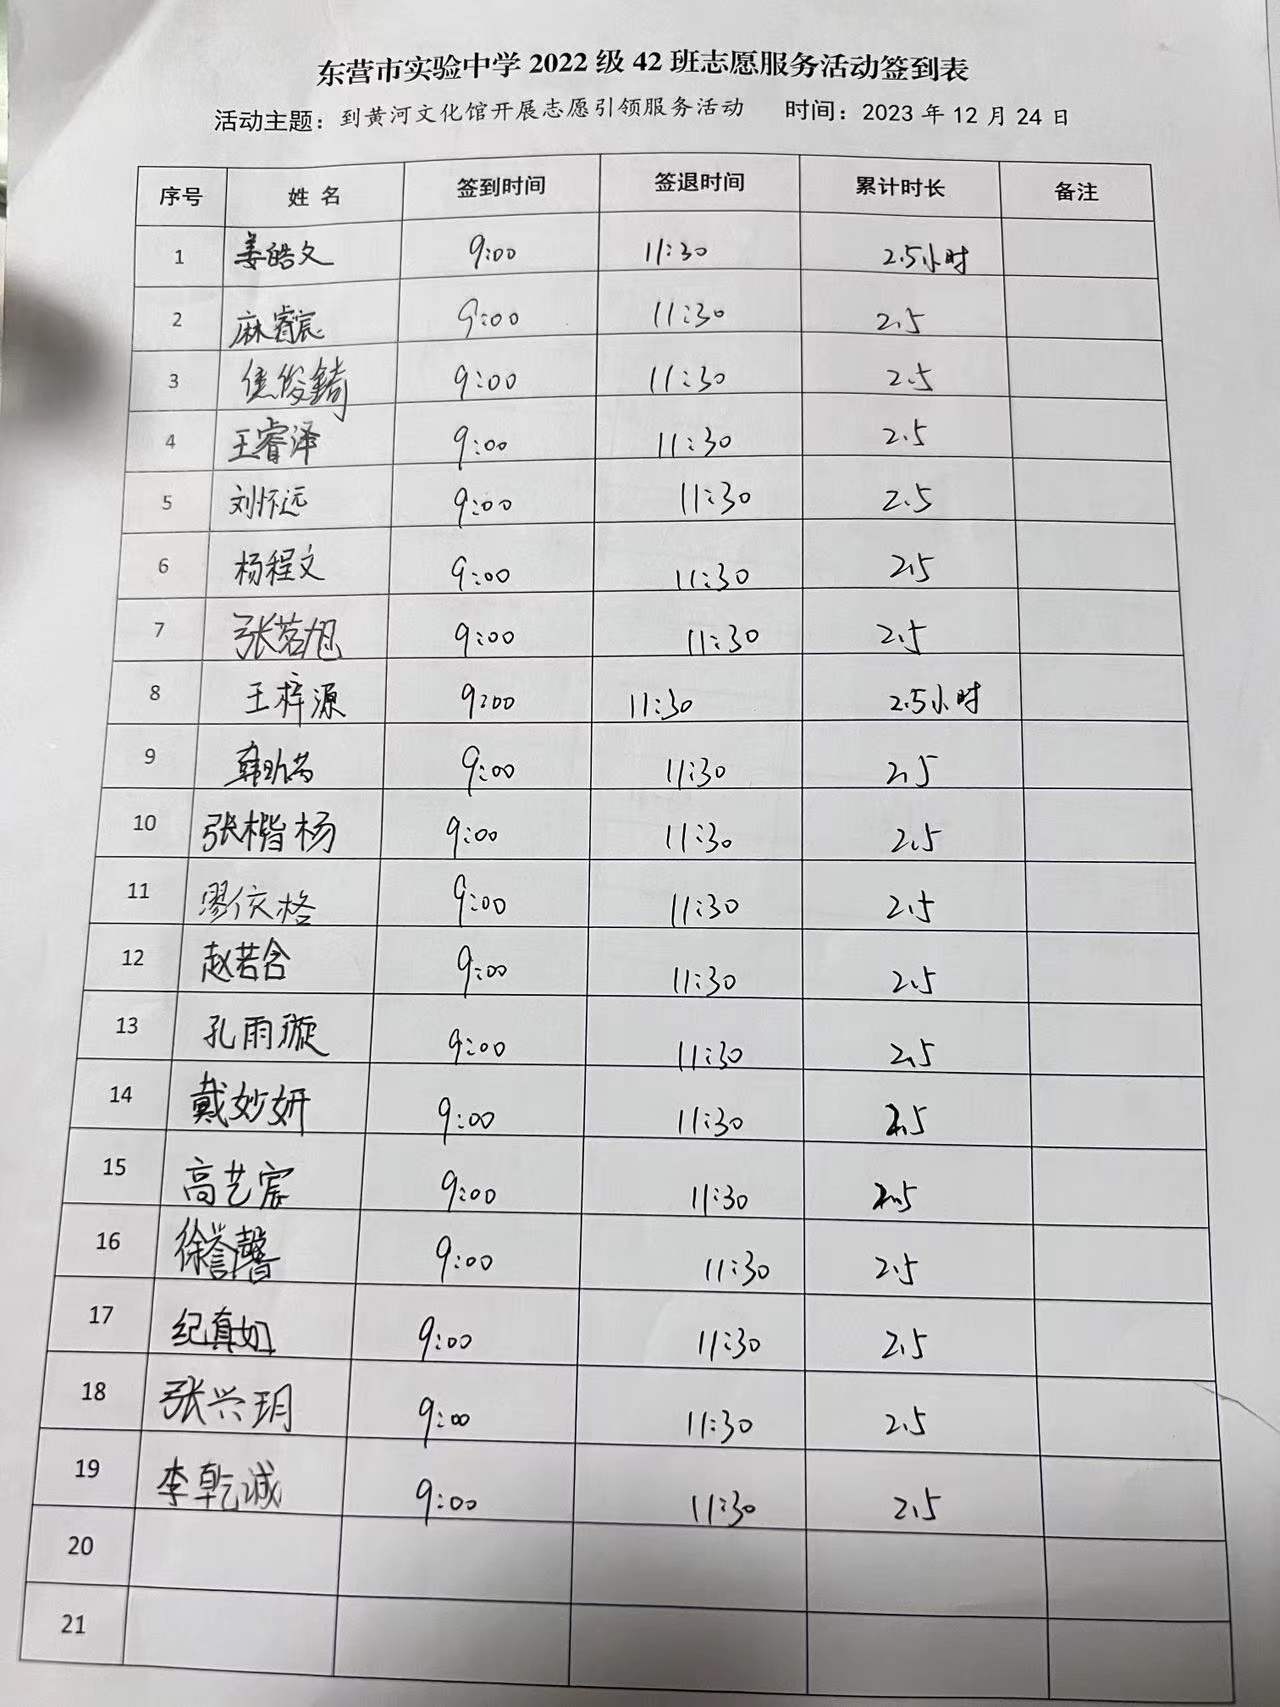 东营市实验中学 2022 级 42 班志愿服务活动签到表
活动主题：到黄河文化馆开展志愿引领服务活动 时间：2023 年 12 月 24 日
序号 姓 名 签到时间 签退时间 累计时长 备注
1 姜皓文 9:00 11:30 2.5小时
2 麻睿宸 9:00 11:30 2.5
3 侯俊錡 9:00 11:30 2.5
4 王睿泽 9:00 11:30 2.5
5 刘怀远 9:00 11:30 2.5
6 杨程文 9:00 11:30 2.5
7 张茗旭 9:00 11:30 2.5
8 王梓源 9:00 11:30 2.5小时
9 韩昕芮 9:00 11:30 2.5
10 张楷杨 9:00 11:30 2.5
11 廖依格 9:00 11:30 2.5
12 赵若含 9:00 11:30 2.5
13 孔雨璇 9:00 11:30 2.5
14 戴妙妍 9:00 11:30 2.5
15 高艺宸 9:00 11:30 2.5
16 徐誉馨 9:00 11:30 2.5
17 纪真如 9:00 11:30 2.5
18 张兴玥 9:00 11:30 2.5
19 李乾诚 9:00 11:30 2.5
20
21